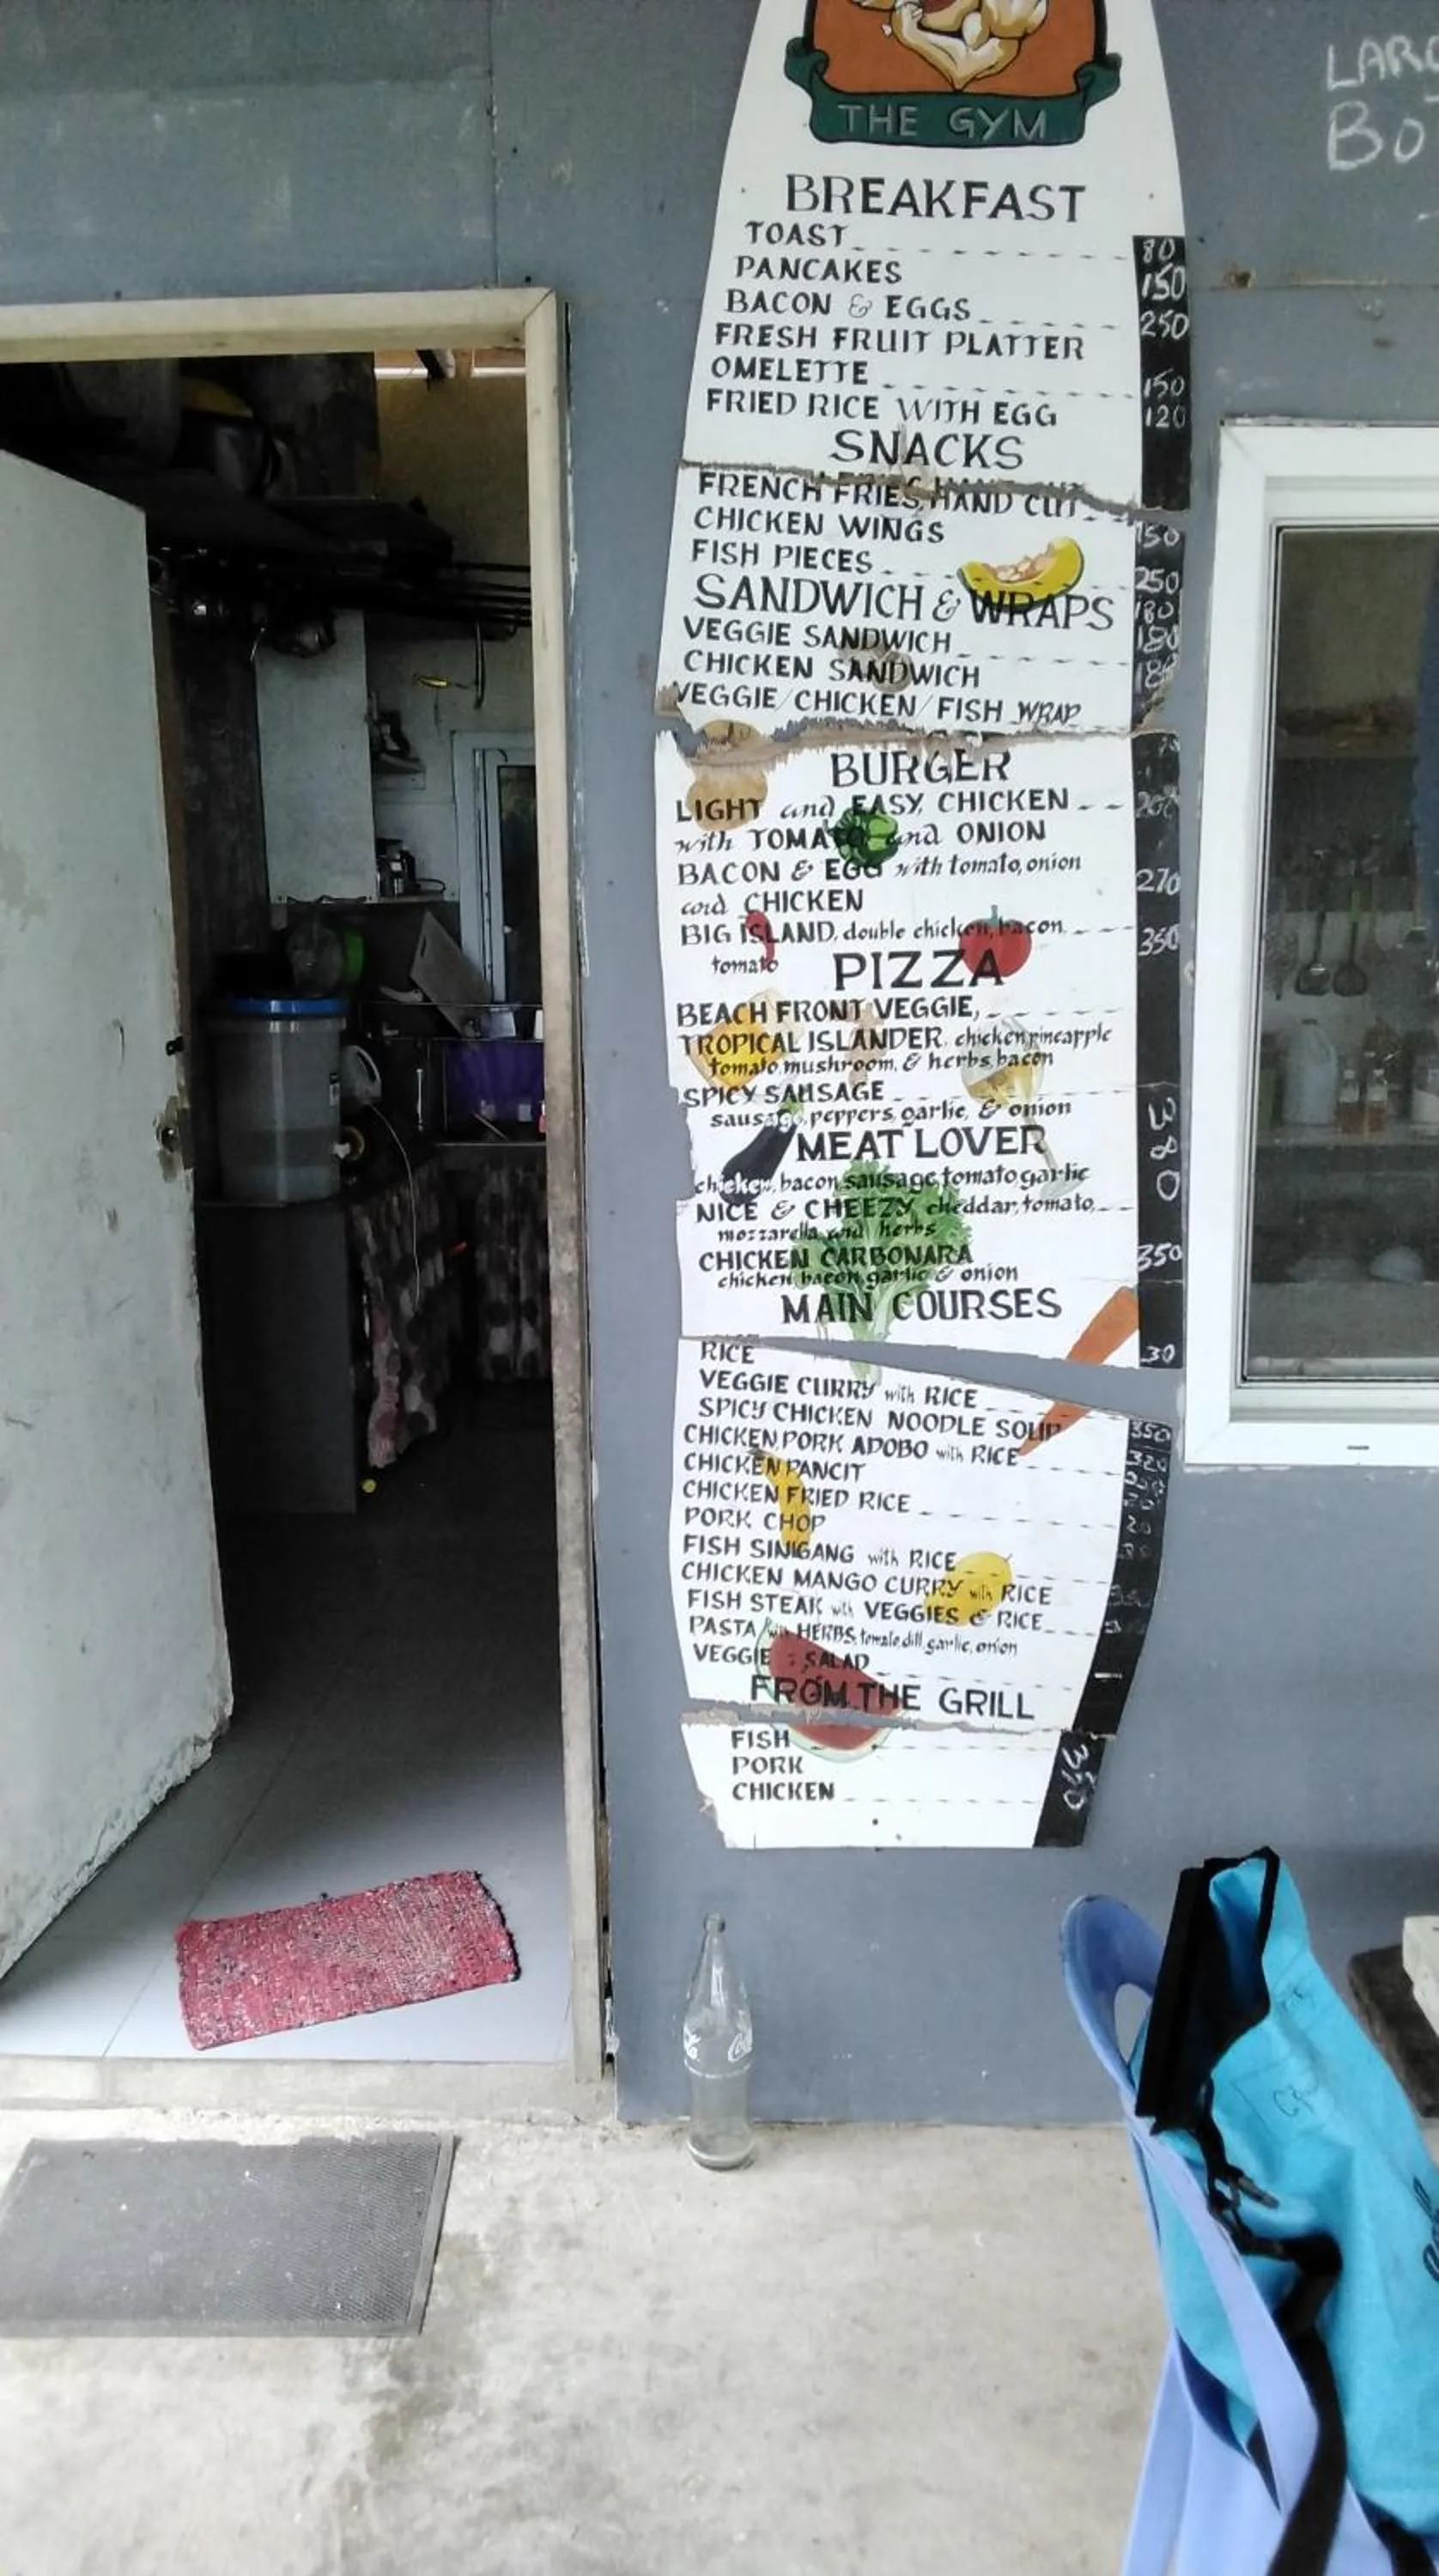 THE GYM
BREAKFAST
TOAST 80
PANCAKES 150
BACON & EGGS 250
FRESH FRUIT PLATTER
OMELETTE 150
FRIED RICE WITH EGG 120
SNACKS
FRENCH FRIES, HAND CUT 150
CHICKEN WINGS 250
FISH PIECES 180
SANDWICH & WRAPS
VEGGIE SANDWICH 180
CHICKEN SANDWICH
VEGGIE/CHICKEN/FISH WRAP
BURGER
LIGHT and EASY, CHICKEN
with TOMATO and ONION
BACON & EGG with tomato, onion 270
and CHICKEN
BIG ISLAND, double chicken, bacon 350
tomato
PIZZA
BEACH FRONT VEGGIE,
TROPICAL ISLANDER, chicken, pineapple
tomato, mushroom, & herbs, bacon
SPICY SAUSAGE
sausage, peppers, garlic, & onion
MEAT LOVER 380
chicken, bacon, sausage, tomato, garlic
NICE & CHEEZY, cheddar, tomato,
mozzarella and herbs
CHICKEN CARBONARA 350
chicken, bacon, garlic & onion
MAIN COURSES
RICE 30
VEGGIE CURRY with RICE 350
SPICY CHICKEN NOODLE SOUP 320
CHICKEN, PORK ADOBO with RICE
CHICKEN PANCIT
CHICKEN FRIED RICE
PORK CHOP
FISH SINIGANG with RICE
CHICKEN MANGO CURRY with RICE
FISH STEAK with VEGGIES & RICE
PASTA with HERBS, tomato, dill, garlic, onion
VEGGIE : SALAD
FROM THE GRILL
FISH
PORK
CHICKEN
LARG
BOT